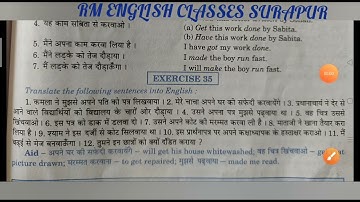 RM ENGLISH CLASSES SURAPUR
4. यह काम सबिता से करवाओ।
(a) Get this work done by Sabita.
(b) Have this work done by Sabita.
5. मैंने अपना काम करवा लिया है।
I have got my work done.
6. मैंने लड़के को तेज दौड़ाया।
I made the boy run fast.
7. मैं लड़के को तेज दौड़ाऊँगा।
I will make the boy run fast.
EXERCISE 35
Translate the following sentences into English :
1. कमला ने मुझसे अपने पति को पत्र लिखवाया। 2. मेरे चाचा अपने घर को सफेदी करवायेंगे। 3. प्रधानाचार्य ने देर से
आने वाले विद्यार्थियों को विद्यालय के चारों ओर दौड़ाया। 4. उसने अपना पत्र मुझसे पढ़वाया था। 5. वह चित्र उससे
खिंचवाओ। 6. इस पत्र को डाक में डलवा दो। 7. उसने अपने कोट की मरम्मत करवा ली है। 8. माताजी ने खाना तैयार करा
लिया है। 9. श्याम ने इस दर्जी से कोट सिलवाया था। 10. इस प्रार्थनापत्र पर अपने कक्षाध्यापक के हस्ताक्षर कराओ। 11. मैं
बढ़ई से मेज बनवाऊँगा। 12. तुमने इन छात्रों को क्यों दंडित कराया ?
Aid – अपने घर की सफेदी करवायेंगे – will get his house whitewashed; वह चित्र खिंचवाओ – get that
picture drawn; मरम्मत करवाना – to get repaired; मुझसे पढ़वाया – made me read.